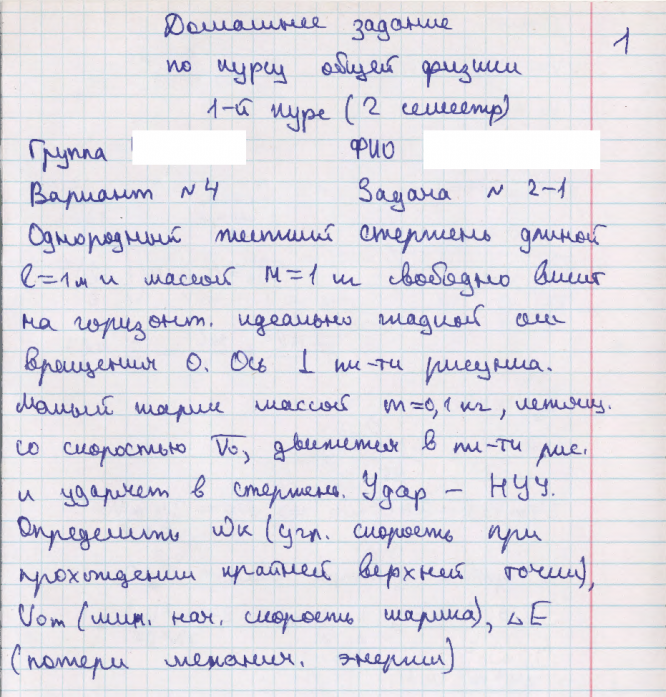 Домашнее задание
1
по курсу общей физики
1-й курс (2 семестр)
Группа ФИО
Вариант №4 Задача № 2-1
Однородный жесткий стержень длиной
l=1м и массой M=1 кг свободно висит
на горизонт. идеально гладкой оси
вращения О. Ось ⊥ пл-ти рисунка.
Малый шарик массой m=0,1 кг, летящ.
со скоростью V̅₀, движется в пл-ти рис.
и ударяет в стержень. Удар – НУУ.
Определить ωк (угл. скорость при
прохождении крайней верхней точки),
V₀m (мин. нач. скорость шарика), △E
(потери механич. энергии)